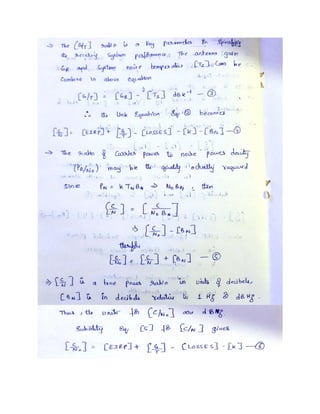 → The [G/T] ratio is a key parameter in specifying
the receiving system performance. The antenna gain
GR and system noise temperature [TS] can be
combine in above equation
[G/T] = [GR] - [TS] dBk⁻¹ — ③
∴ the link equation eq ② becomes
[C/N] = [EIRP] + [G/T] - [LOSSES] - [k] - [BN] — ④
→ The ratio of carrier power to noise power density
(PR/No) may be the quality actually required
since PN = k TN BN = No BN, then
[C/N] = [C/No BN]
⇒ [C/No] - [BN]
therefore
[C/No] = [C/N] + [BN] — ⑤
⇒ [C/N] is a true power ratio in units of decibels,
[BN] is in decibels relative to 1 Hz or dBHz.
Thus, the units for [C/No] are dBHz.
Substituting Eq [5] for [C/N] gives
[C/No] = [EIRP] + [G/T] - [LOSSES] - [k] — ⑥